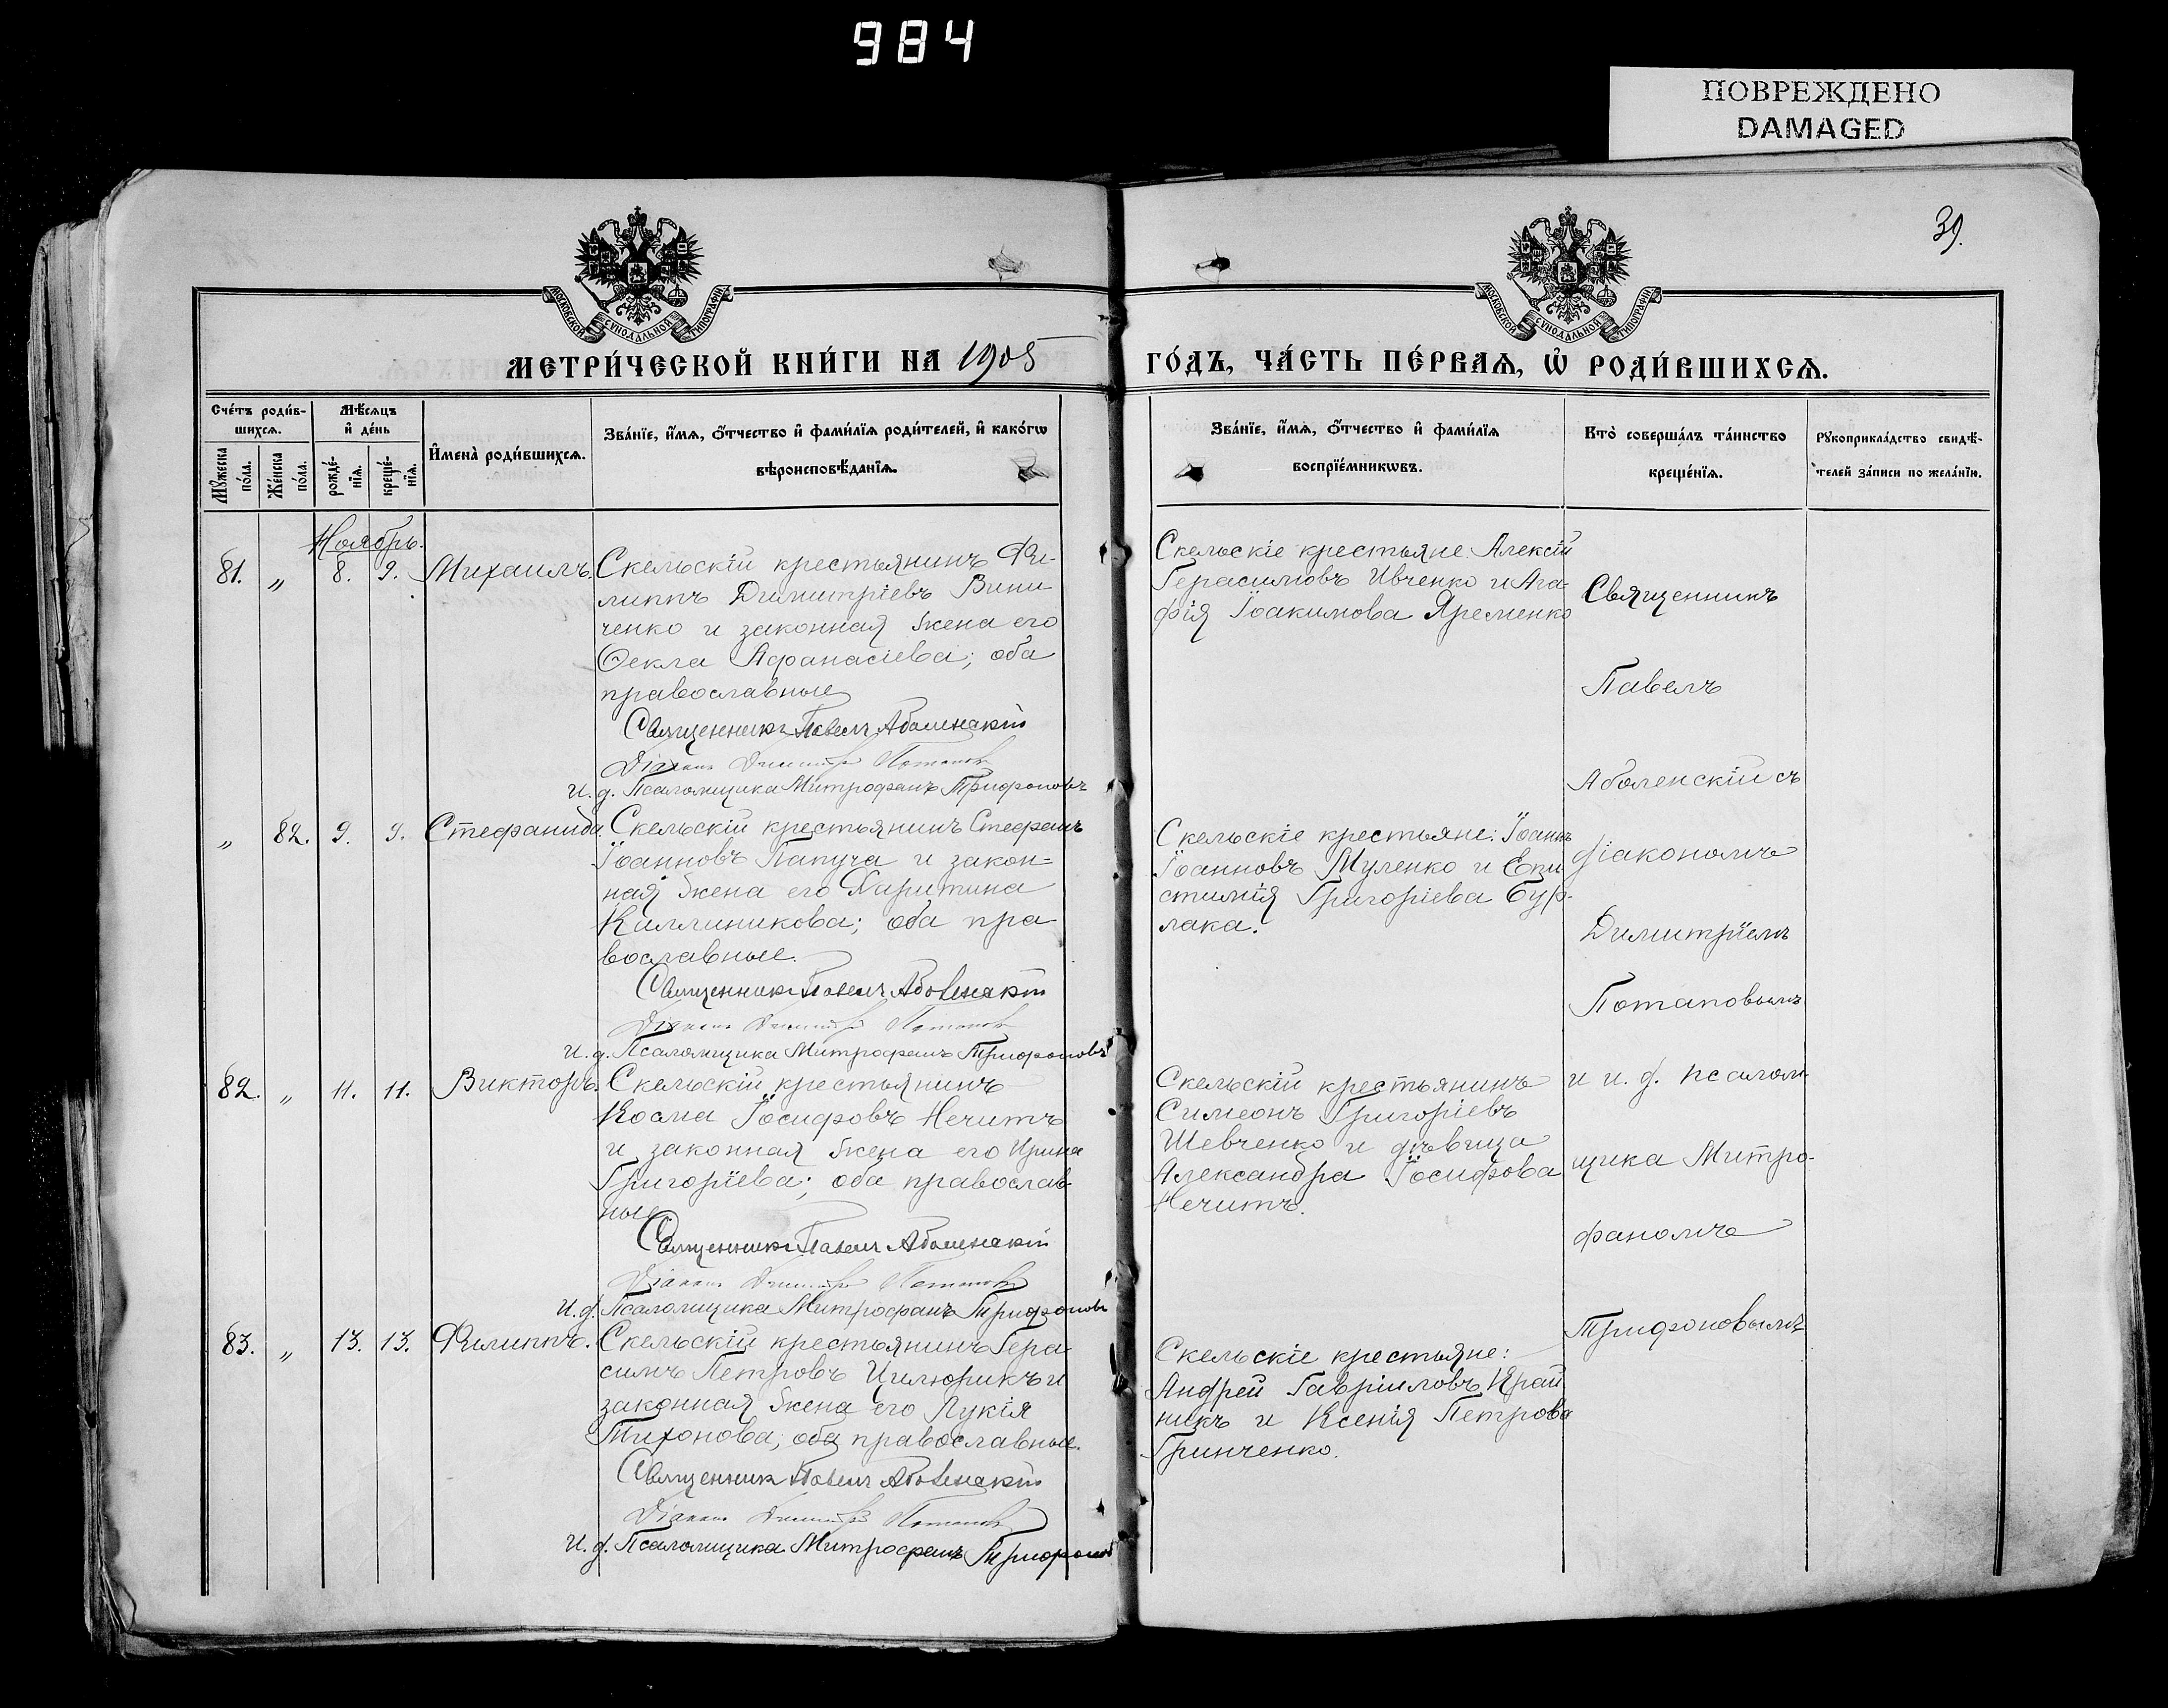 984
ПОВРЕЖДЕНО
DAMAGED
39.
МОСКОВСКОЙ СѴНОДАЛЬНОЙ ТИПОГРАФІИ
МОСКОВСКОЙ СѴНОДАЛЬНОЙ ТИПОГРАФІИ
МЕТРИ́ЧЕСКОЙ КНИ́ГИ НА 1905
ГО́ДЪ, ЧА́СТЬ ПЕ́РВАѦ, Ѡ҆ РОДИ́ВШИХСѦ.
Сче́тъ роди́в-
шихсѧ.
Мꙋ́жеска по́ла.
Же́нска по́ла.
Мѣ́сѧцъ
и҆ де́нь
рожде́-
нїѧ.
креще́-
нїѧ.
И҆мена̀ роди́вшихсѧ.
Зва́нїе, и҆́мѧ, ѻ҆́тчество и҆ фами́лїѧ роди́телей, и҆ како́гѡ
вѣроисповѣ́данїѧ.
Зва́нїе, и҆́мѧ, ѻ҆́тчество и҆ фами́лїѧ
воспрїе́мникѡвъ.
Кто̀ соверша́лъ та́инство
креще́нїѧ.
Рꙋкоприкла́дство свидѣ́-
телей за́писи по жела́нїю.
Ноябрь.
81. „ 8. 9. Михаилъ.
Скельскій крестьянинъ Фи-
липпъ Димитріевъ Вини-
ченко и законная жена его
Ѳекла Афанасіева; оба
православные
Священникъ Павелъ Аболенскій
Діаконъ Димитрій Потаповъ
И. д. Псаломщика Митрофанъ Трифоновъ
Скельскіе крестьяне: Алексій
Герасимовъ Ивченко и Ага-
фія Іоакимова Яременко
„ 82. 9. 9. Стефанида.
Скельскій крестьянинъ Стефанъ
Іоанновъ Папуча и закон=
ная жена его Харитина
Каллиникова; оба пра
вославные.
Священникъ Павелъ Аболенскій
Діаконъ Димитрій Потаповъ
И. д. Псаломщика Митрофанъ Трифоновъ
Скельскіе крестьяне: Іоаннъ
Іоанновъ Муленко и Епи
стимія Григоріева Бур-
лака.
82. „ 11. 11. Викторъ.
Скельскій крестьянинъ
Косма Іосифовъ Нечитъ
и законная жена его Ирина
Григоріева; оба православ-
ные
Священникъ Павелъ Аболенскій
Діаконъ Димитрій Потаповъ
И. д. Псаломщика Митрофанъ Трифоновъ
Скельскій крестьянинъ
Симеонъ Григоріевъ
Шевченко и дѣвица
Александра Іосифова
Нечитъ.
83. „ 13. 13. Филиппъ.
Скельскій крестьянинъ Гера-
симъ Петровъ Цилюрикъ и
законная жена его Лукія
Тихонова, оба православные.
Священникъ Павелъ Аболенскій
Діаконъ Димитрій Потаповъ
И. д. Псаломщика Митрофанъ Трифоновъ
Скельскіе крестьяне:
Андрей Гавріиловъ Край
никъ и Ксенія Петрова
Гринченко.
Священникъ
Павелъ
Аболенскій съ
діакономъ
Димитріемъ
Потаповымъ
и и. д. псалом-
щика Митро-
фаномъ
Трифоновымъ